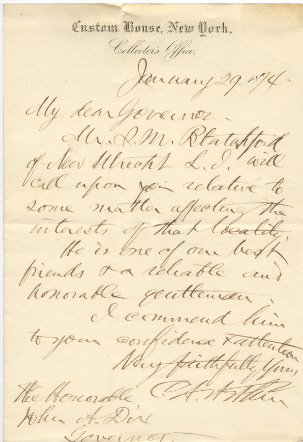 Custom House, New York.
Collector's Office,
January 29 1874
My dear Governor -
Mr. S. M. Blatchford
of New Utrecht L.I. will
call upon you relative to
some matter affecting the
interests of that locality.
He is one of our best
friends & a reliable and
honorable gentleman.
I commend him
to your confidence & attention
Very faithfully Yours
C. A. Arthur
The Honorable
John A. Dix
Governor